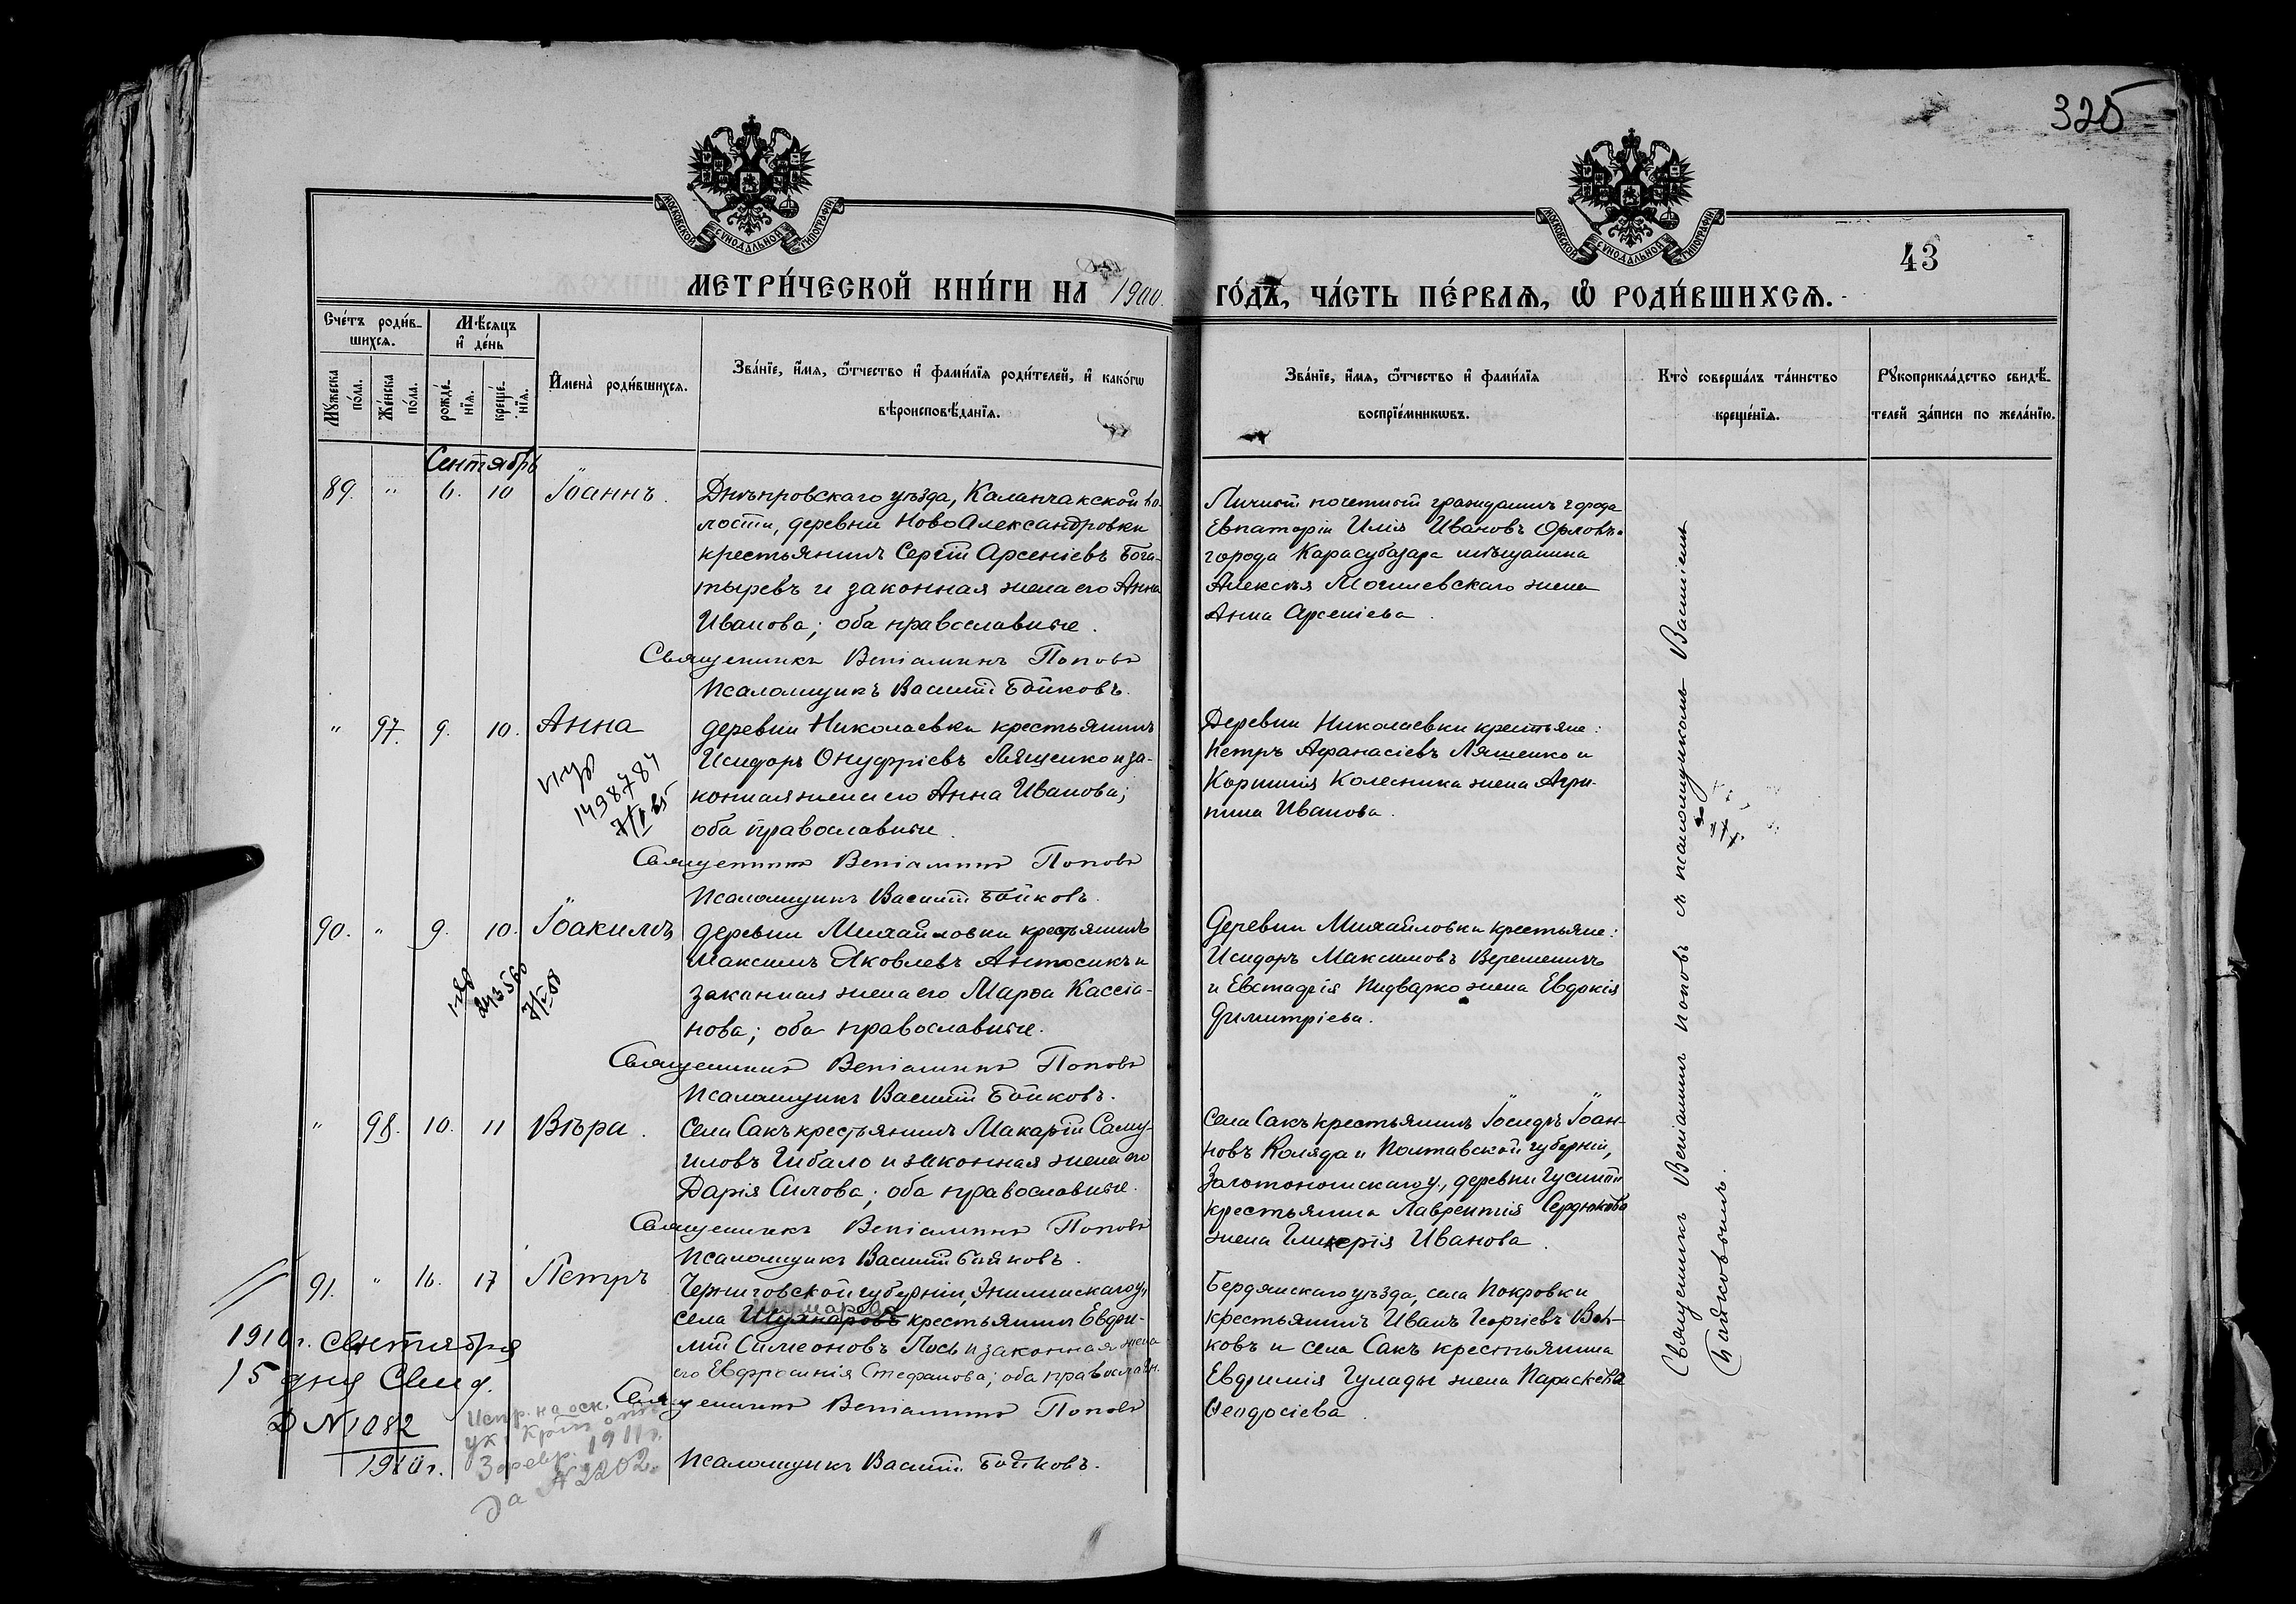 325
43
МОСКОВСКОЙ СѴНОДАЛЬНОЙ ТИПОГРАФІИ
МОСКОВСКОЙ СѴНОДАЛЬНОЙ ТИПОГРАФІИ
МЕТРИ́ЧЕСКОЙ КНИ́ГИ НА 1900 ГО́ДЪ, ЧА́СТЬ ПЕ́РВАѦ, Ѽ РОДИ́ВШИХСѦ.
Сче́тъ роди́в-
шихсѧ.
Мѣ́сѧцъ
и҆ де́нь
Мꙋ́жеска
по́ла.
Же́нска
по́ла.
рожде́-
нїѧ.
креще́-
нїѧ.
И҆мена̀ роди́вшихсѧ.
Зва́нїе, и҆́мѧ, ѻ҆́тчество и҆ фами́лїѧ роди́телей, и҆ како́гѡ
вѣроисповѣ́данїѧ.
Зва́нїе, и҆́мѧ, ѻ҆́тчество и҆ фами́лїѧ
воспрїе́мникѡвъ.
Кто̀ соверша́лъ та́инство
креще́нїѧ.
Рꙋкоприкла́дство свидѣ́-
телей за́писи по жела́нїю.
Сентябрь
89. " 6. 10 Іоаннъ.
Днѣпровскаго уѣзда, Каланчакской во-
лости, деревни НовоАлександровки
крестьянинъ Сергій Арсеніевъ Бога-
тыревъ и законная жена его Анна
Иванова; оба православные.
Священникъ Веніаминъ Поповъ
Псаломщикъ Василій Бойковъ.
Личный почетный гражданинъ города
Евпаторіи Илія Ивановъ Орловъ и
города Карасубазара мѣщанина
Алексѣя Могилевскаго жена
Анна Арсеніева.
" 97. 9. 10. Анна
1498784
деревни Николаевки крестьянинъ
Исидоръ Онуфріевъ Ляшенко и за-
конная жена его Анна Иванова;
оба православные.
Священникъ Веніаминъ Поповъ
Псаломщикъ Василій Бойковъ.
Деревни Николаевки крестьяне:
Петръ Афанасіевъ Ляшенко и
Корнилія Колесника жена Агри-
пина Иванова.
90. " 9. 10. Іоакимъ
243560
деревни Михайловки крестьянинъ
Максимъ Яковлевъ Антосикъ и
законная жена его Марѳа Кассіа-
нова; оба православные.
Священникъ Веніаминъ Поповъ
Псаломщикъ Василій Бойковъ.
Деревни Михайловки крестьяне:
Исидоръ Максимовъ Веремеинъ
и Евстафія Пидварко жена Евдокія
Димитріева.
" 98. 10. 11 Вѣра.
Села Сакъ крестьянинъ Макарій Саму-
иловъ Гибало и законная жена его
Дарія Силова; оба православные.
Священникъ Веніаминъ Поповъ
Псаломщикъ Василій Бойковъ.
Села Сакъ крестьянинъ Іосифъ Іоан-
новъ Коляда и Полтавской губерніи,
Золотоношскаго у., деревни
крестьянина Лаврентія Сердюкова
жена Гликерія Иванова.
91. " 16. 17 Петръ
Черниговской губерніи, у.,
села крестьянинъ Евфи-
мій Симеоновъ Лось и законная жена
его Евфросинія Стефанова; оба православн.
Священникъ Веніаминъ Поповъ
Псаломщикъ Василій Бойковъ.
Бердянскаго уѣзда, села Покровки
крестьянинъ Иванъ Георгіевъ Вол-
ковъ и села Сакъ крестьянина
Евфимія Гулады жена Параскева
Ѳеодосіева.
1910г. Сентября
15 дня Свид.
Д N1082
1910г.
Испр. на осн.
ук.
Зфевр. 1911г.
за N2202.
Священникъ Веніаминъ Поповъ съ псаломщикомъ Василіемъ
Бойковымъ.